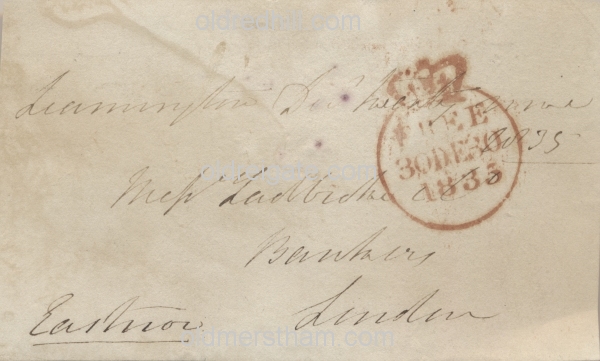 oldmerstham.com
Leamington Decr twenty nine
1835
FREE
30DE30
1835
Messrs Ladbroke & Co
Bankers
London
Eastnor
oldmerstham.com